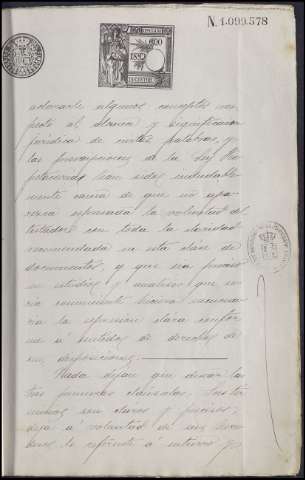 N. 1.099.578
algunos conceptos res
pecto al alcance y significacion
jurídica de ciertas palabras, y
las prescripciones de la Ley Hi
potecaria han sido indudable
mente causa de que no apa
rezca expresada la voluntad del
testador con toda la claridad
recomendada en esta clase de
documentos, y que sea preciso
un estudio y analisis que no
sería necesario
la expresion clara confor
me á sentido de derecho de
sus disposiciones.
Nada dejan que desear las
tres primeras clausulas. Sus tér
minos son claros y precisos;
deja á voluntad de sus
el referente á entierro y